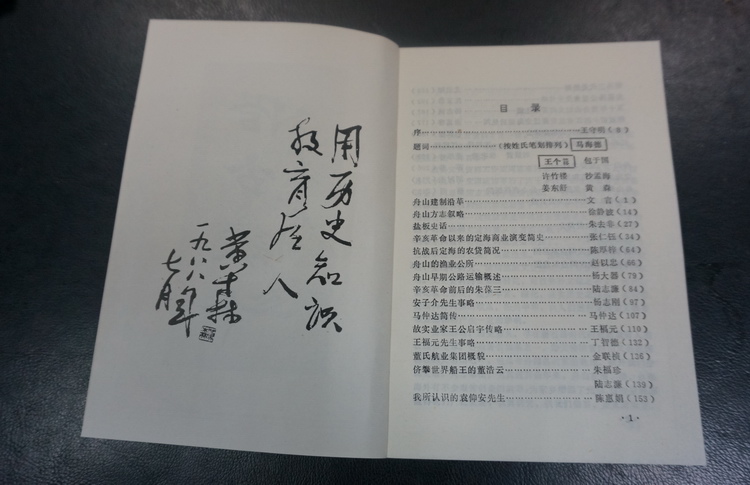 用历史知识
教育后人
黄森
一九八八年
七月
目录
序……王守明（3）
题词……（按姓氏笔划排列）马海德
王个簃 包于国
许竹楼 沙孟海
姜东舒 黄森
舟山建制沿革……文言（1）
舟山方志叙略……徐静波（14）
盐板史话……朱去非（27）
辛亥革命以来的定海商业演变简史……张仁伍（34）
抗战后定海的农贷简况……陈厚梓（64）
舟山的渔业公所……赵以忠（66）
舟山早期公路运输概述……杨大器（79）
辛亥革命前后的朱葆三……陆志濂（84）
安子介先生事略……杨志刚（97）
马仲达简传……马仲达（107）
故实业家王公启宇传略……王福元（110）
王福元先生事略……丁智德（132）
董氏航业集团概貌……金联桢（136）
侪攀世界船王的董浩云……朱福珍
陆志濂（139）
我所认识的袁仰安先生……陈惠娟（153）
·1·